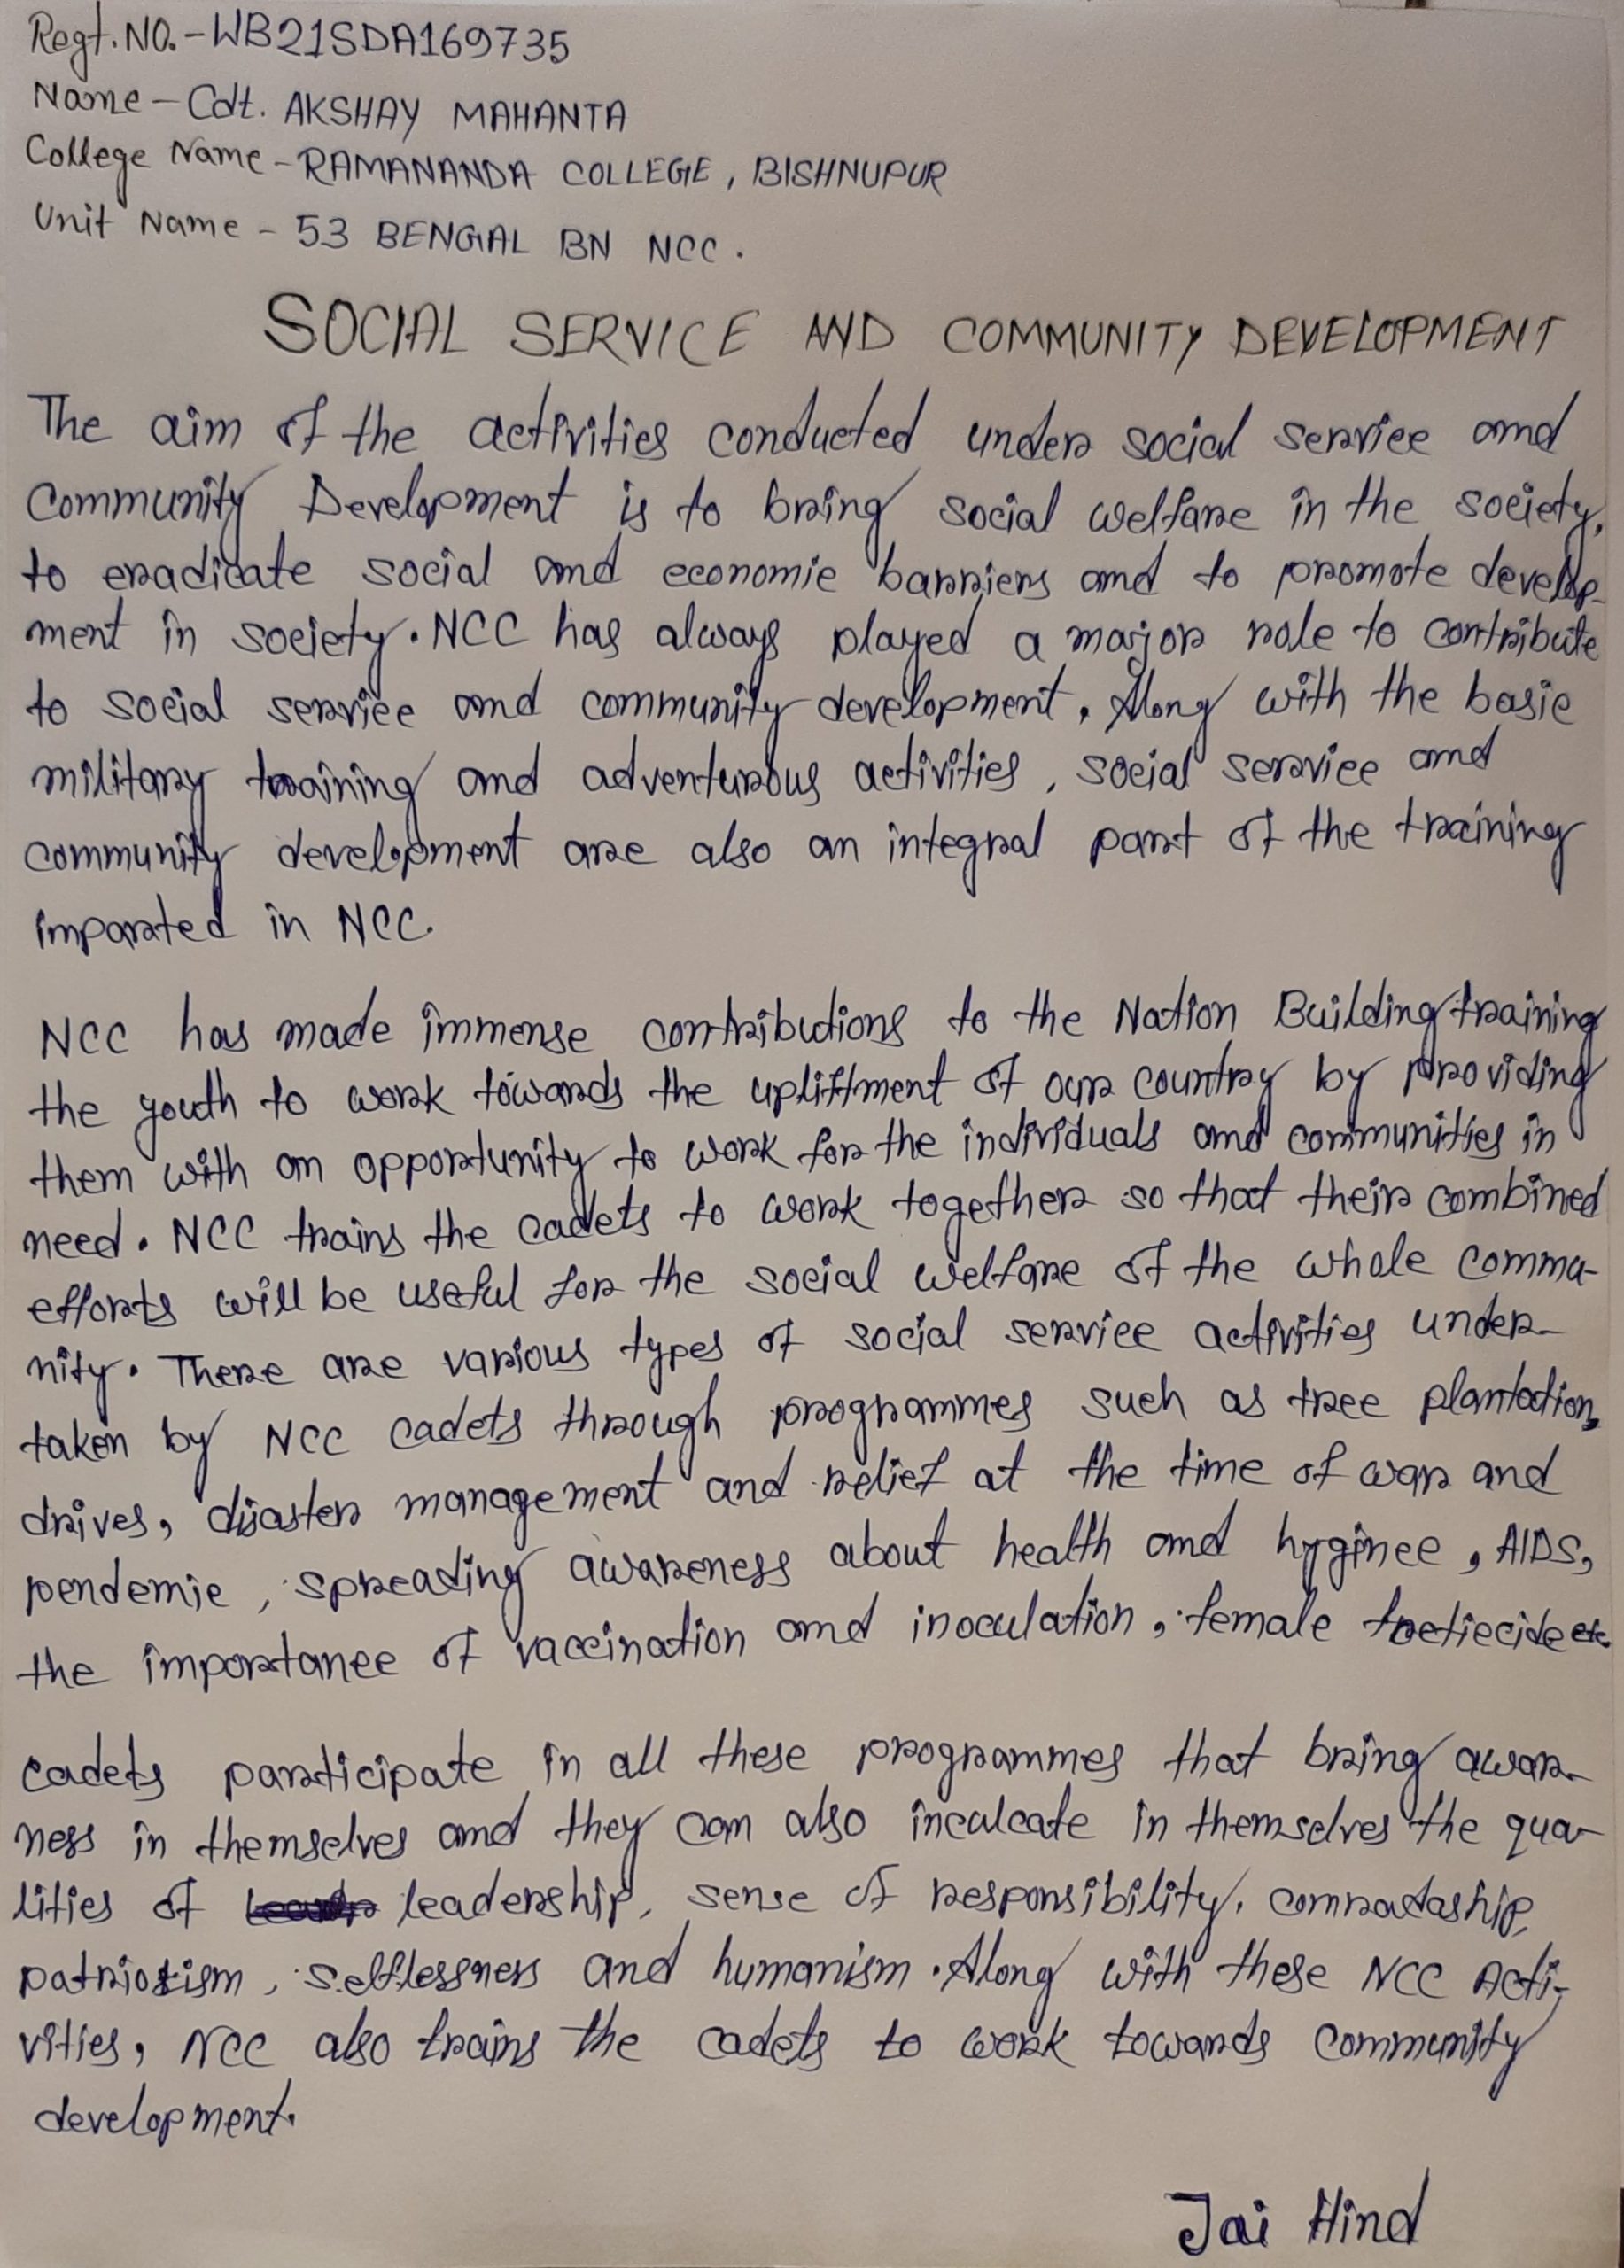 Regt. NO. - WB21SDA169735
Name - Cdt. AKSHAY MAHANTA
College Name - RAMANANDA COLLEGE, BISHNUPUR
Unit Name - 53 BENGAL BN NCC.
SOCIAL SERVICE AND COMMUNITY DEVELOPMENT
The aim of the activities conducted under social service and
Community Development is to bring social welfare in the society,
to eradicate social and economic barriers and to promote develop-
ment in society. NCC has always played a major role to contribute
to social service and community development. Along with the basic
military training and adventurous activities, social service and
community development are also an integral part of the training
imparated in NCC.
NCC has made immense contributions to the Nation Building training
the youth to work towards the upliftment of our country by providing
them with an opportunity to work for the individuals and communities in
need. NCC trains the cadets to work together so that their combined
efforts will be useful for the social welfare of the whole commu-
nity. There are various types of social service activities under-
taken by NCC cadets through programmes such as tree plantation,
drives, disaster management and relief at the time of war and
pendemic, spreading awareness about health and hyginee, AIDS,
the importance of vaccination and inoculation, female foeticide etc.
Cadets participate in all these programmes that bring awar-
ness in themselves and they can also inculcate in themselves the qua-
lities of leadership, sense of responsibility, comradaship,
patriotism, selflessness and humanism. Along with these NCC Acti-
vities, NCC also trains the cadets to work towards community
development.
Jai Hind